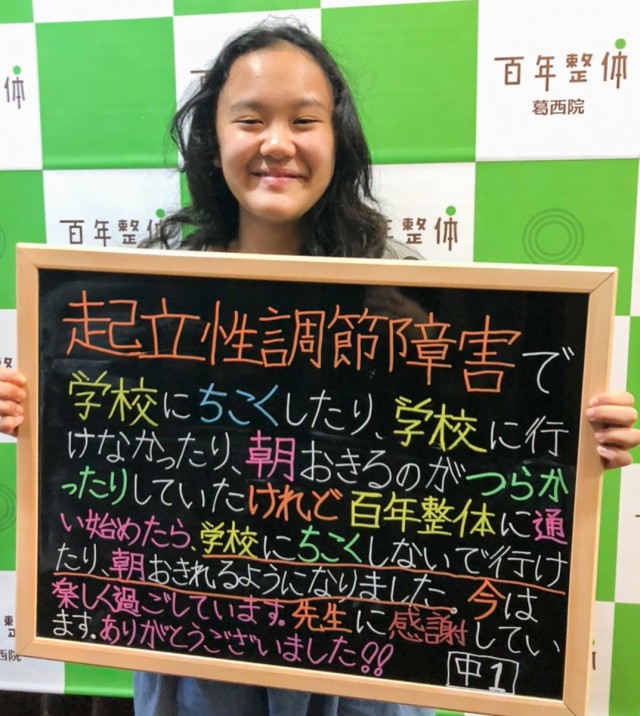 百年整体
葛西院
百年整体
百年整体
起立性調節障害で
学校にちこくしたり、学校に行
けなかったり、朝おきるのがつらか
ったりしていたけれど百年整体に通
い始めたら、学校にちこくしないで行け
たり、朝おきれるようになりました。今は
楽しく過ごしています。先生に感謝してい
ます。ありがとうございました!!
中1